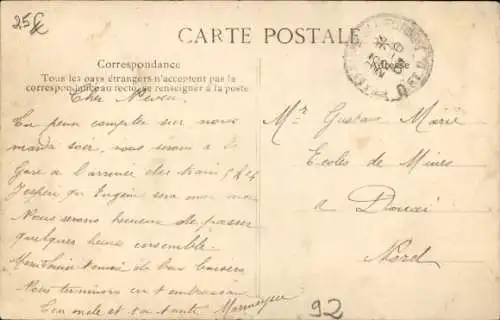 25€
CARTE POSTALE
Correspondance
Adresse
Tous les pays étrangers n'acceptent pas la
correspondance au recto, se renseigner à la poste
Cher Neveu
Tu peux compter sur nous
mardi soir, nous serons à la
Gare à l'arrivée des train
J'espère qu'Eugène sera
Nous serons heureux de passer
quelques heures ensemble.
Marie Louise t'envoie de bons baisers
Nous terminons en t'embrassant
Ton oncle et ta tante
Mr Gustave Marié
Ecoles de Mines
a Douai
Nord
92